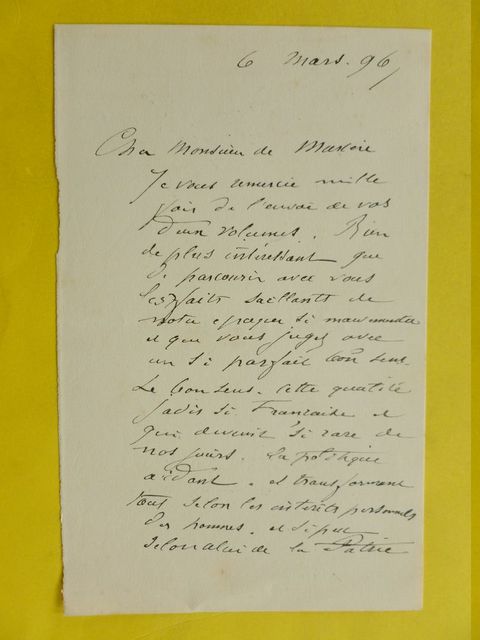 6 Mars. 96
Cher Monsieur de
Je vous remercie mille
fois de l'envoi de vos
deux volumes. Rien
de plus intéressant que
de parcourir avec vous
les faits saillants de
notre époque si
et que vous jugez avec
un si parfait bon sens.
Le bon sens. Cette qualité
jadis si Française et
qui devient si rare de
nos jours. la politique
aidant. et transformant
tout selon les intérêts personnels
des hommes. et si peu
selon celui de la Patrie